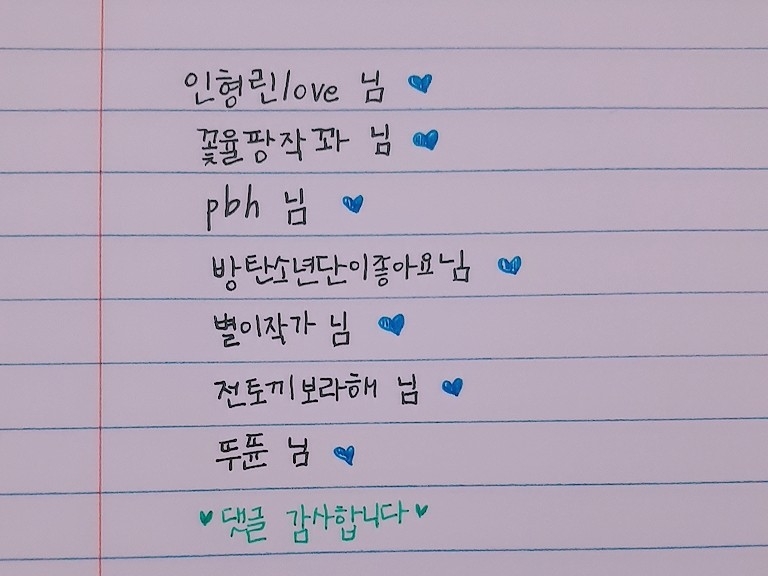 인형린love 님 💙
꽃율팡작꽈 님 💙
pbh 님 💙
방탄소년단이좋아요님 💙
별이작가 님 💙
전토끼보라해 님 💙
뚜듄 님 💙
♥댓글 감사합니다♥